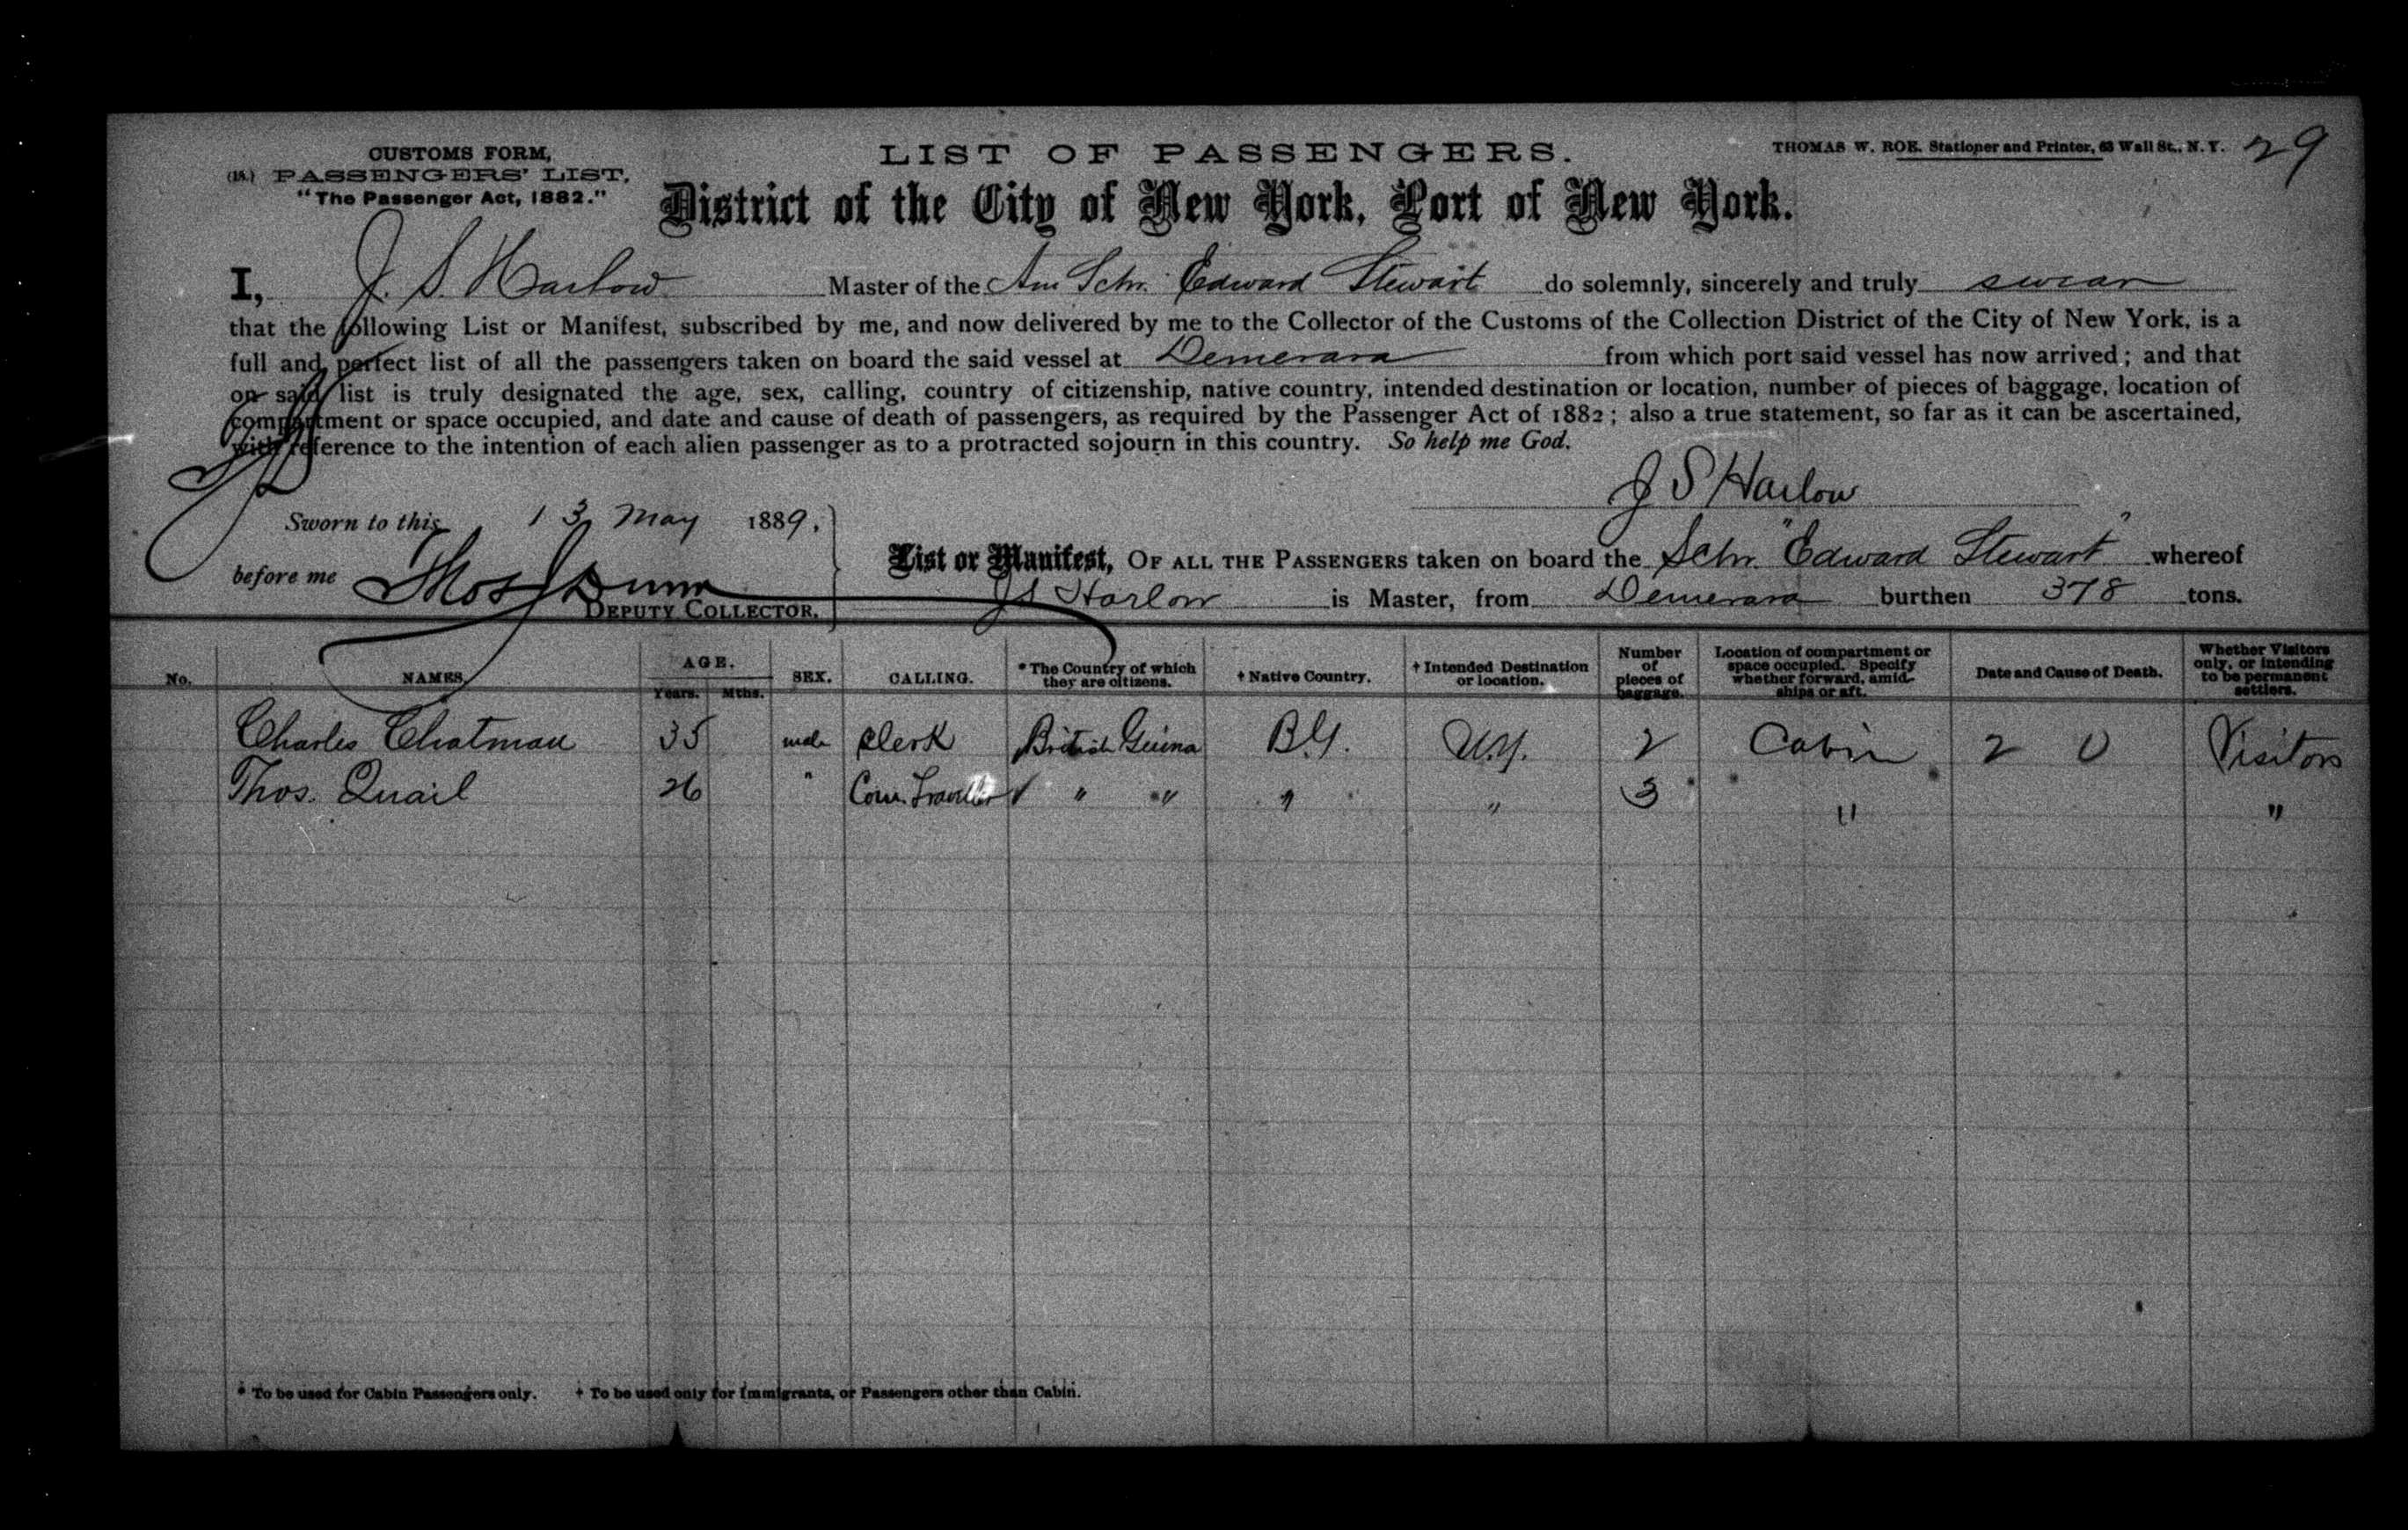 CUSTOMS FORM,
(18.) PASSENGERS' LIST,
"The Passenger Act, 1882."
LIST OF PASSENGERS.
THOMAS W. ROE. Stationer and Printer, 63 Wall St., N. Y.
29
District of the City of New York, Port of New York.
I, J. S. Harlow Master of the Am Schr. Edward Stewart do solemnly, sincerely and truly swear
that the following List or Manifest, subscribed by me, and now delivered by me to the Collector of the Customs of the Collection District of the City of New York, is a
full and perfect list of all the passengers taken on board the said vessel at Demerara from which port said vessel has now arrived; and that
on said list is truly designated the age, sex, calling, country of citizenship, native country, intended destination or location, number of pieces of baggage, location of
compartment or space occupied, and date and cause of death of passengers, as required by the Passenger Act of 1882; also a true statement, so far as it can be ascertained,
with reference to the intention of each alien passenger as to a protracted sojourn in this country. So help me God.
J S Harlow
Sworn to this 13 May 1889.
before me Thos Dunn
DEPUTY COLLECTOR.
List or Manifest, OF ALL THE PASSENGERS taken on board the Schr. "Edward Stewart" whereof
J S Harlow is Master, from Demerara burthen 378 tons.
No. NAMES. AGE. Years. Mths. SEX. CALLING. * The Country of which they are citizens. † Native Country. † Intended Destination or location. Number of pieces of baggage. Location of compartment or space occupied. Specify whether forward, amidships or aft. Date and Cause of Death. Whether Visitors only, or intending to be permanent settlers.
Charles Chatman 35 male Clerk British Guina B.G. 2 Cabin 2 0 Visitors
Thos. Quail 26 " Com. Traveller " " " " 3 " "
* To be used for Cabin Passengers only. † To be used only for Immigrants, or Passengers other than Cabin.